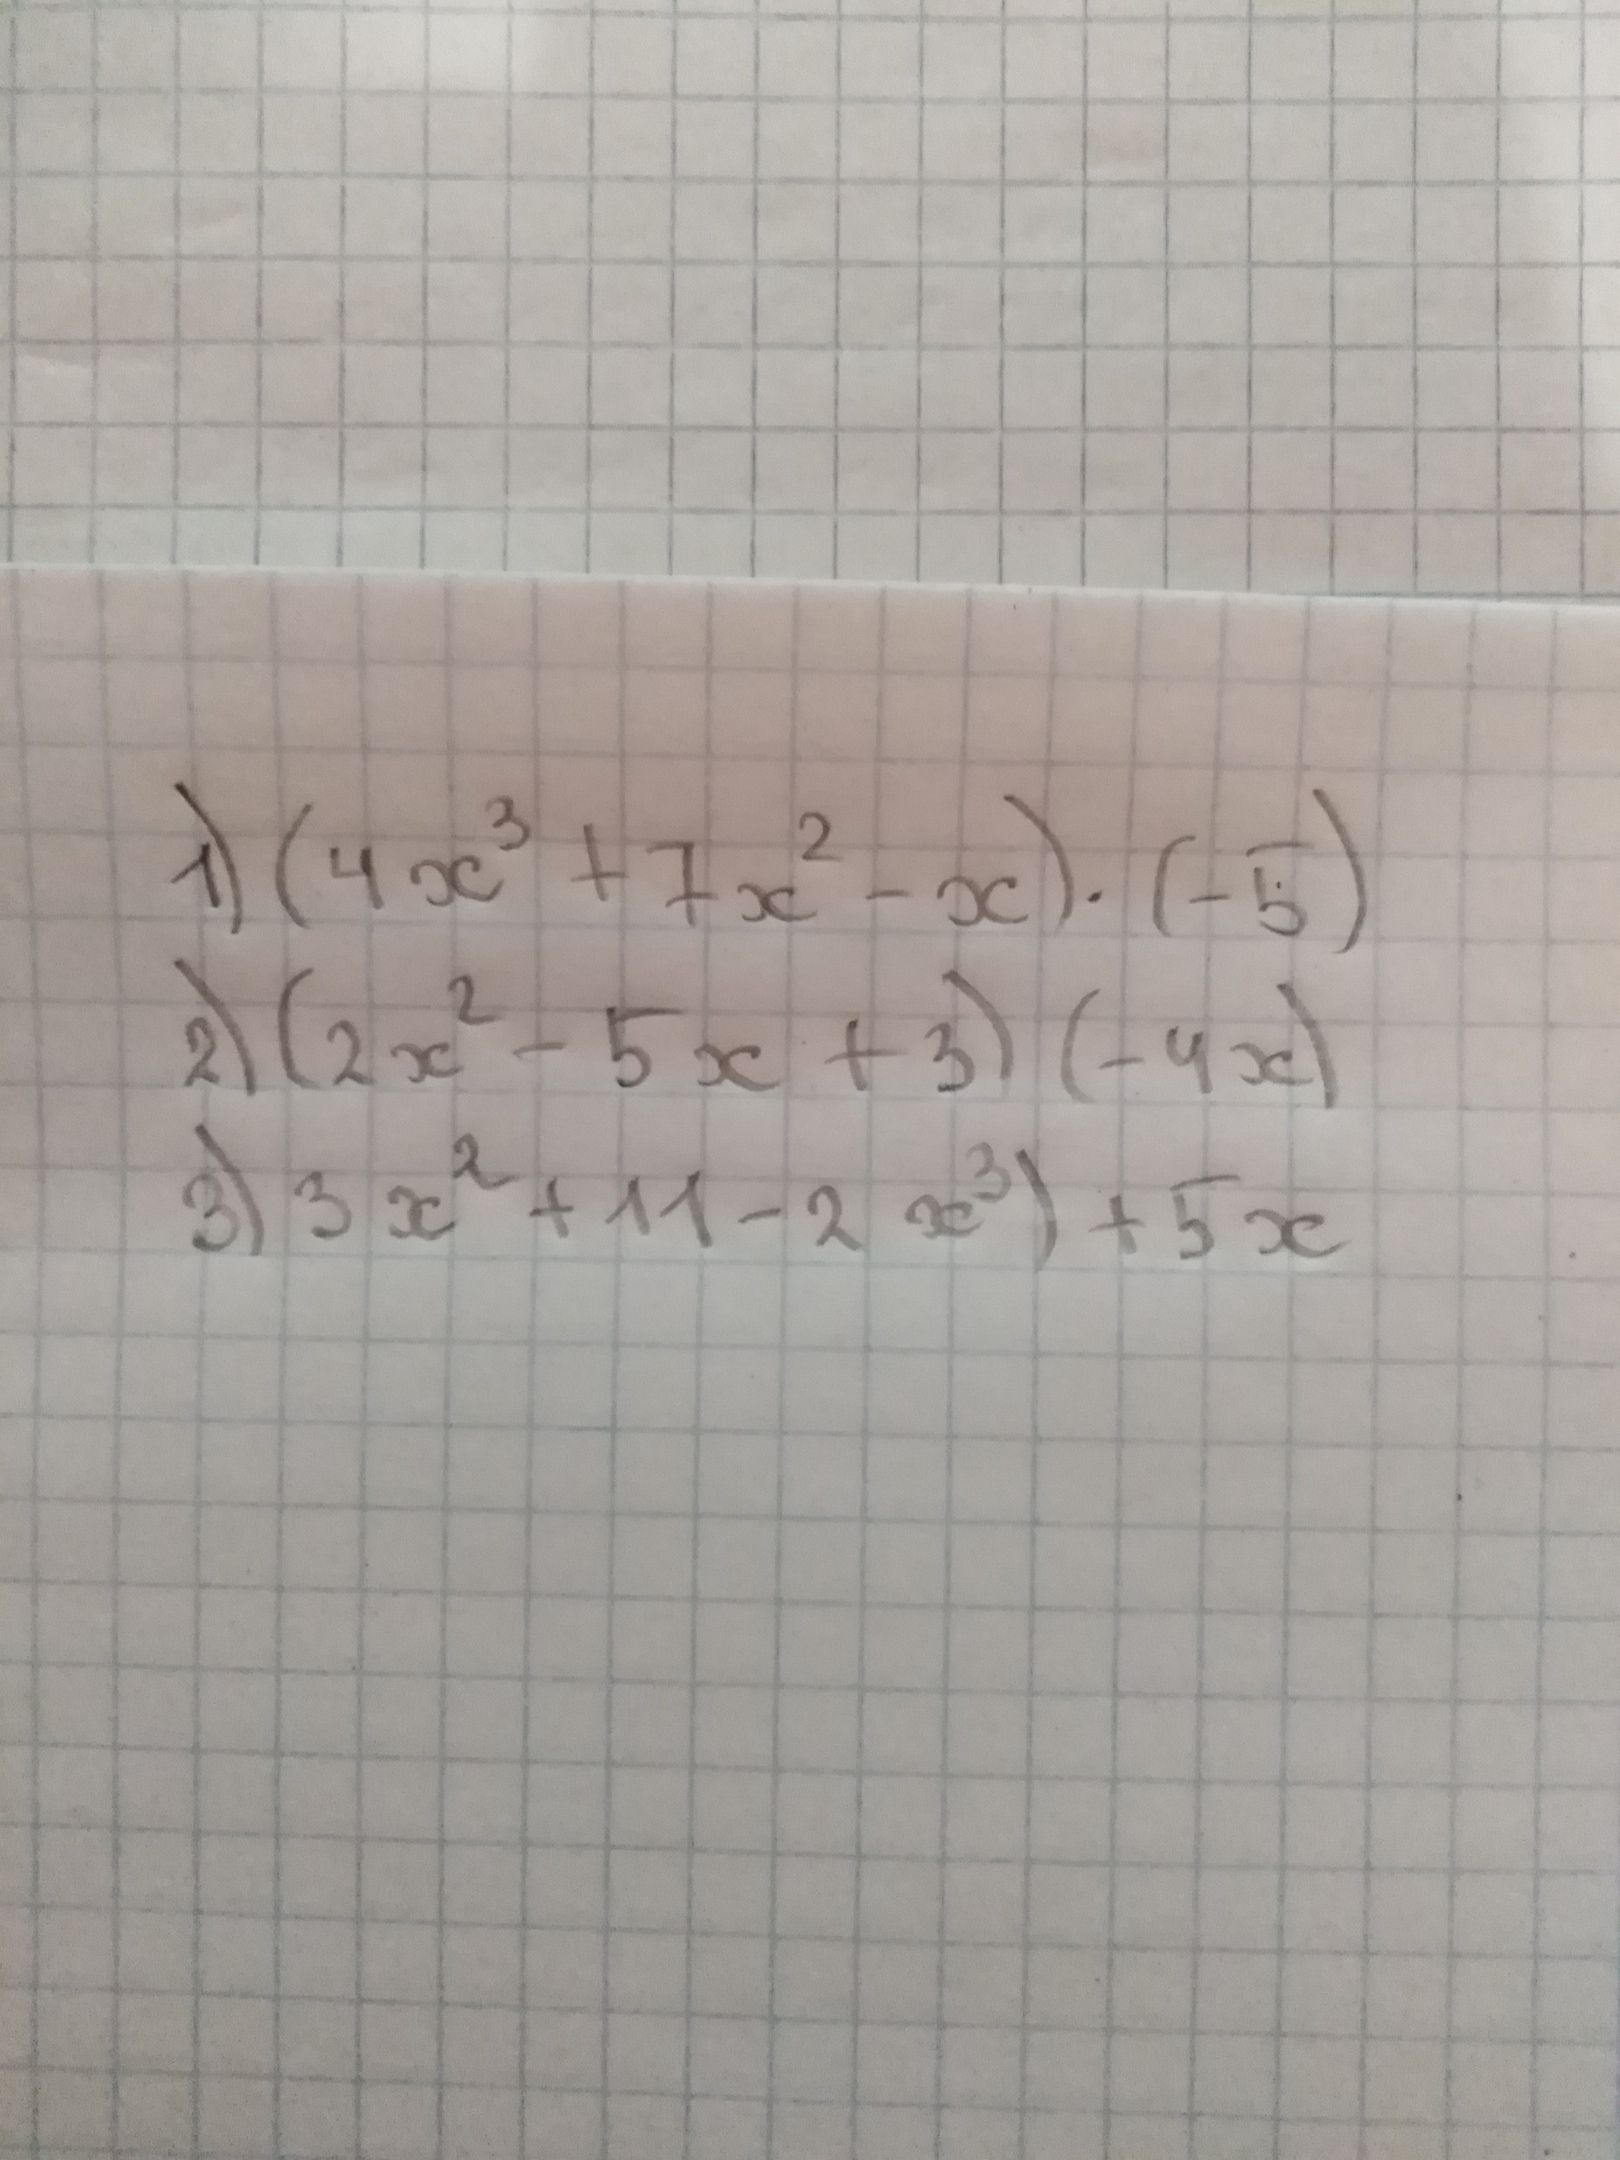 1) (4x³ + 7x² - x) · (-5)
2) (2x² - 5x + 3) (-4x)
3) 3x² + 11 - 2x³) + 5x